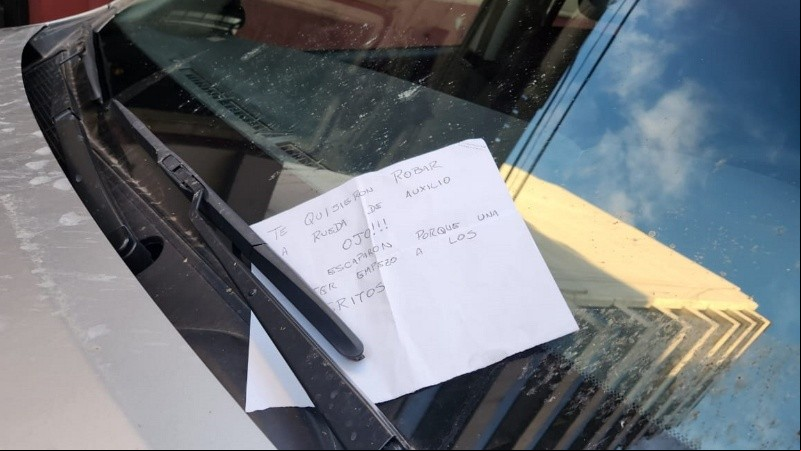 TE QUISIERON ROBAR
A RUEDA DE AUXILIO
OJO!!!
ESCAPARON PORQUE UNA
ER EMPEZO A LOS
RITOS